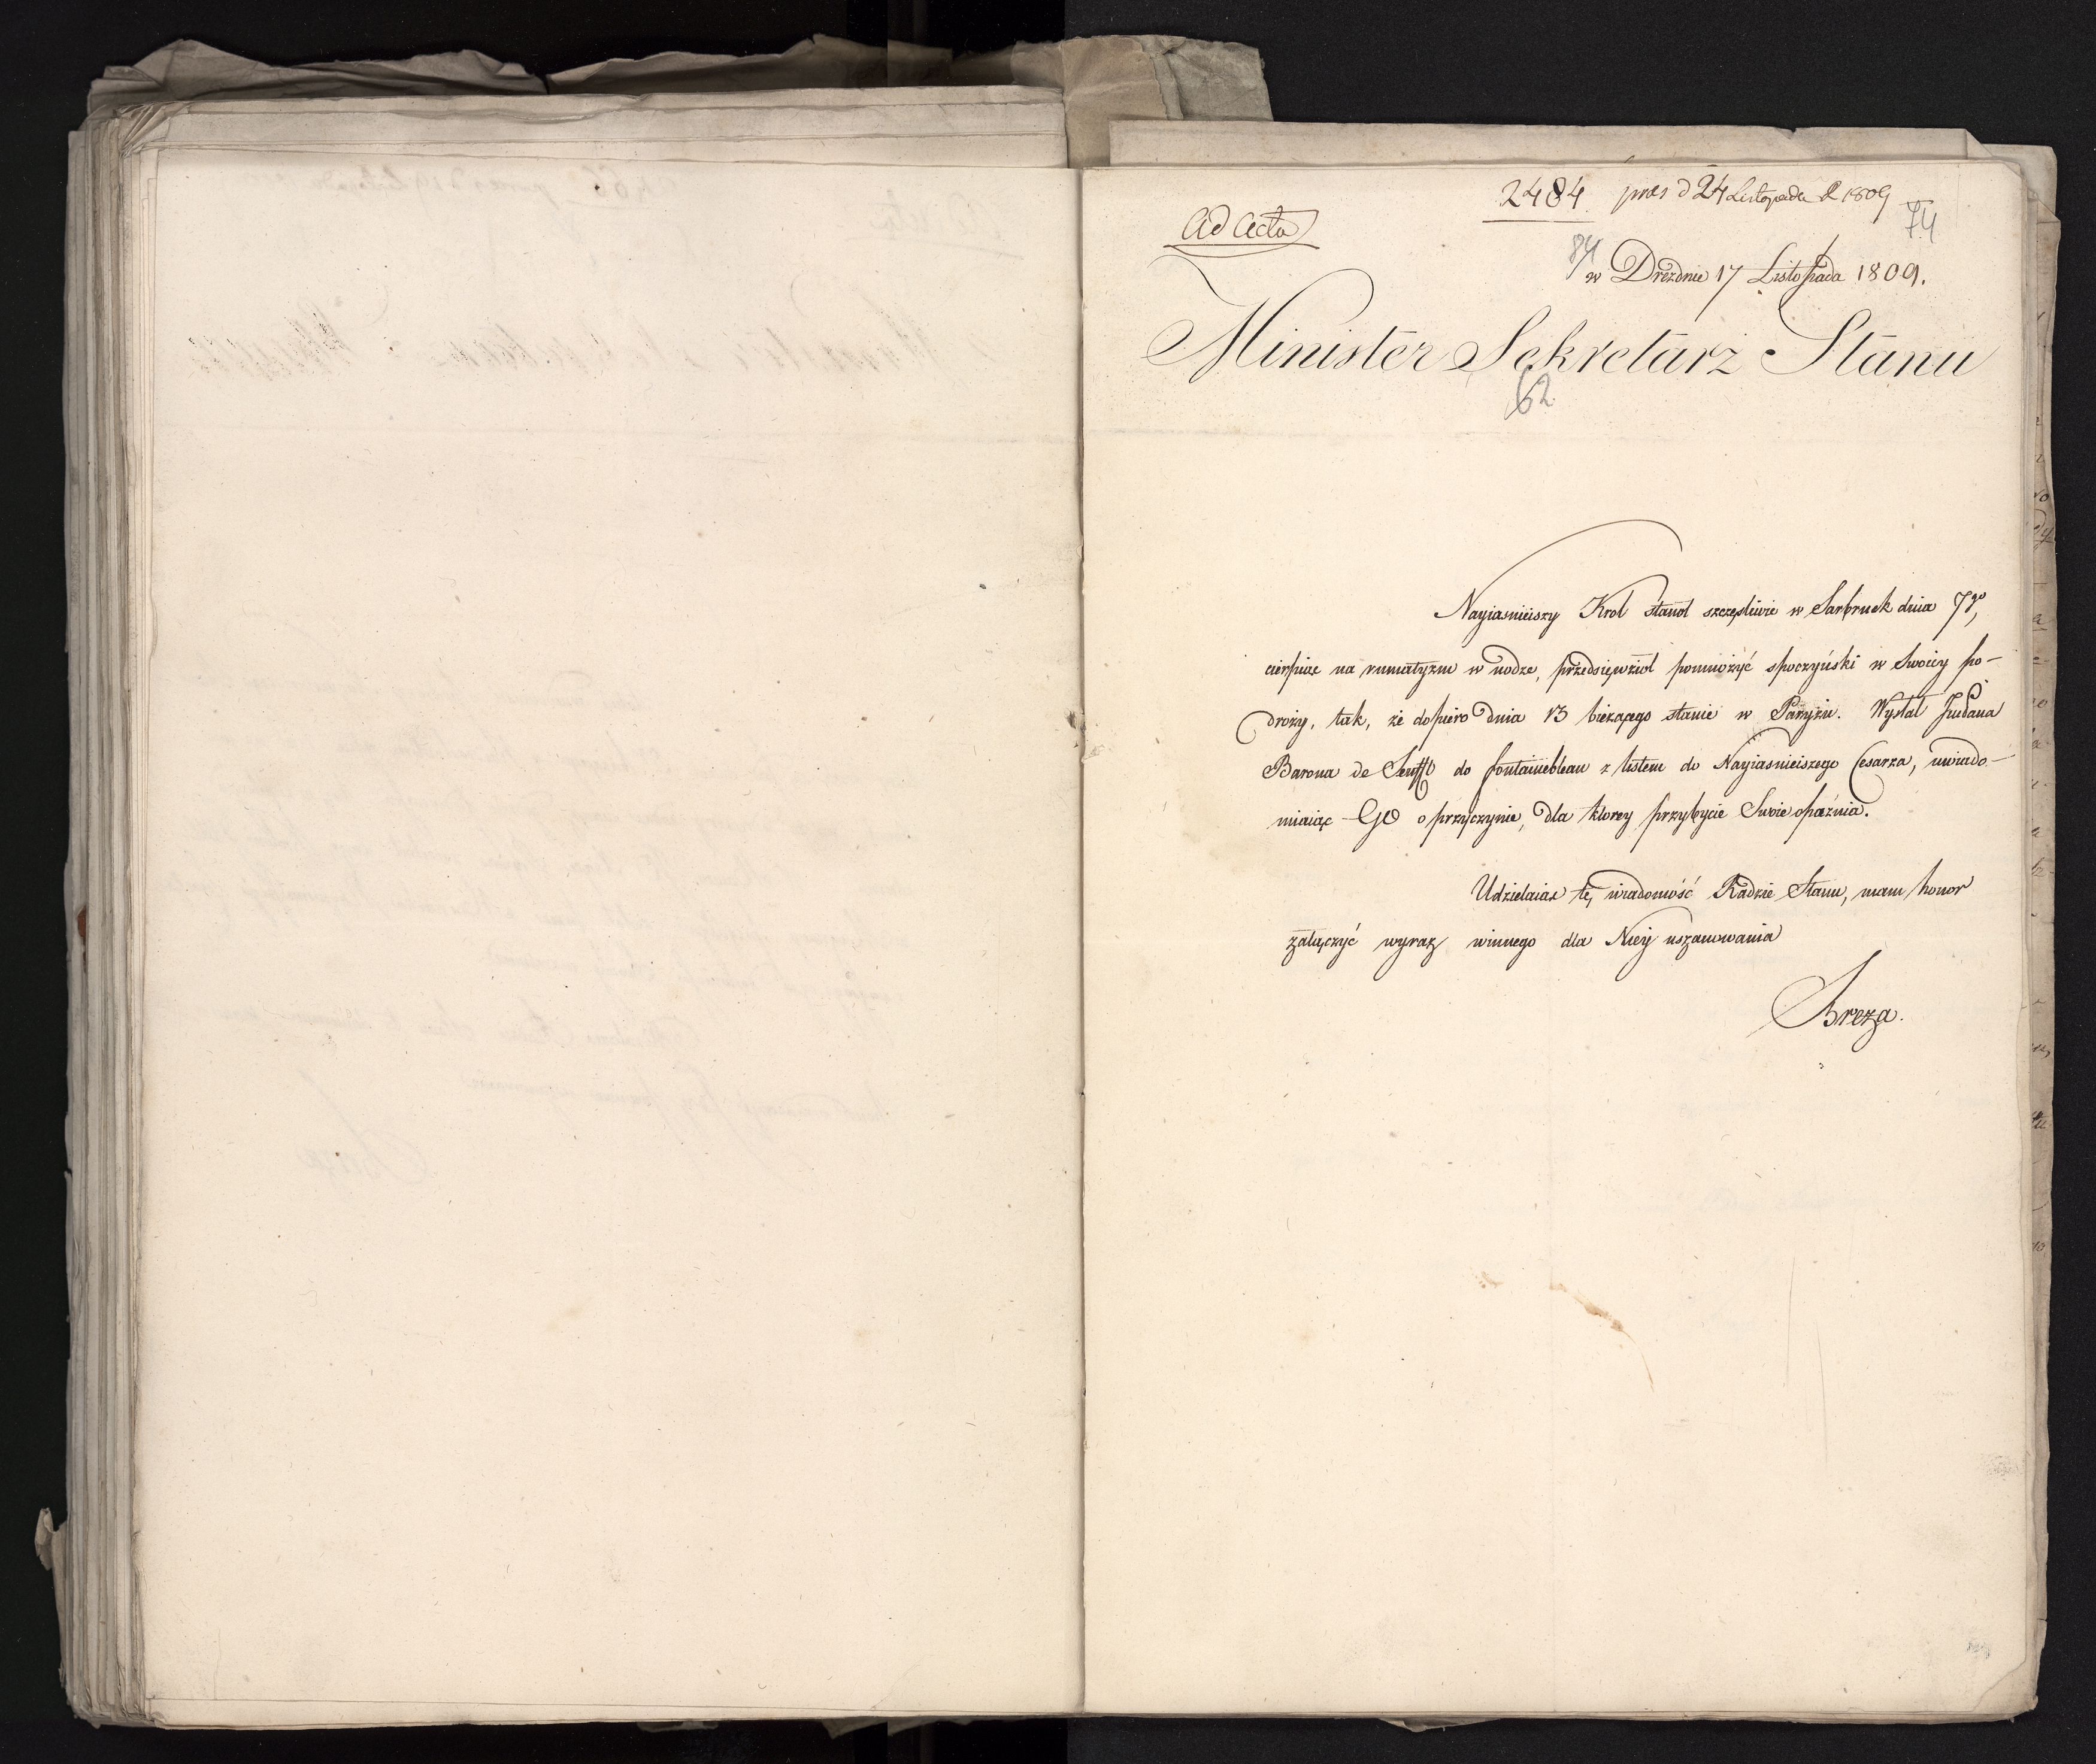 2484 præs d 24 Listopada R 1809
74
Ad Acta
84
w Dreznie 17 Listopada 1809.
Minister Sekretarz Stanu
62
Nayiasnieiszy Krol stanoł szczęsliwie w Sarbruck dnia 7go,
cierpiąc na rumatyzm w nodze, przedsięwzioł pomnożyć spoczyński w Swoiey po-
droży, tak, że dopiero dnia 13 bieżącego stanie w Paryżu. Wysłał JmPana
Barona de Senfft do Fontainebleau z listem do Nayiasnieiszego Cesarza, uwiado-
miaiąc Go o przyczynie, dla ktorey przybycie Swoie opaźnia.
Udzielaiąc tę wiadomość Radzie Stanu, mam honor
załączyć wyraz winnego dla Niey uszanowania
Breza.